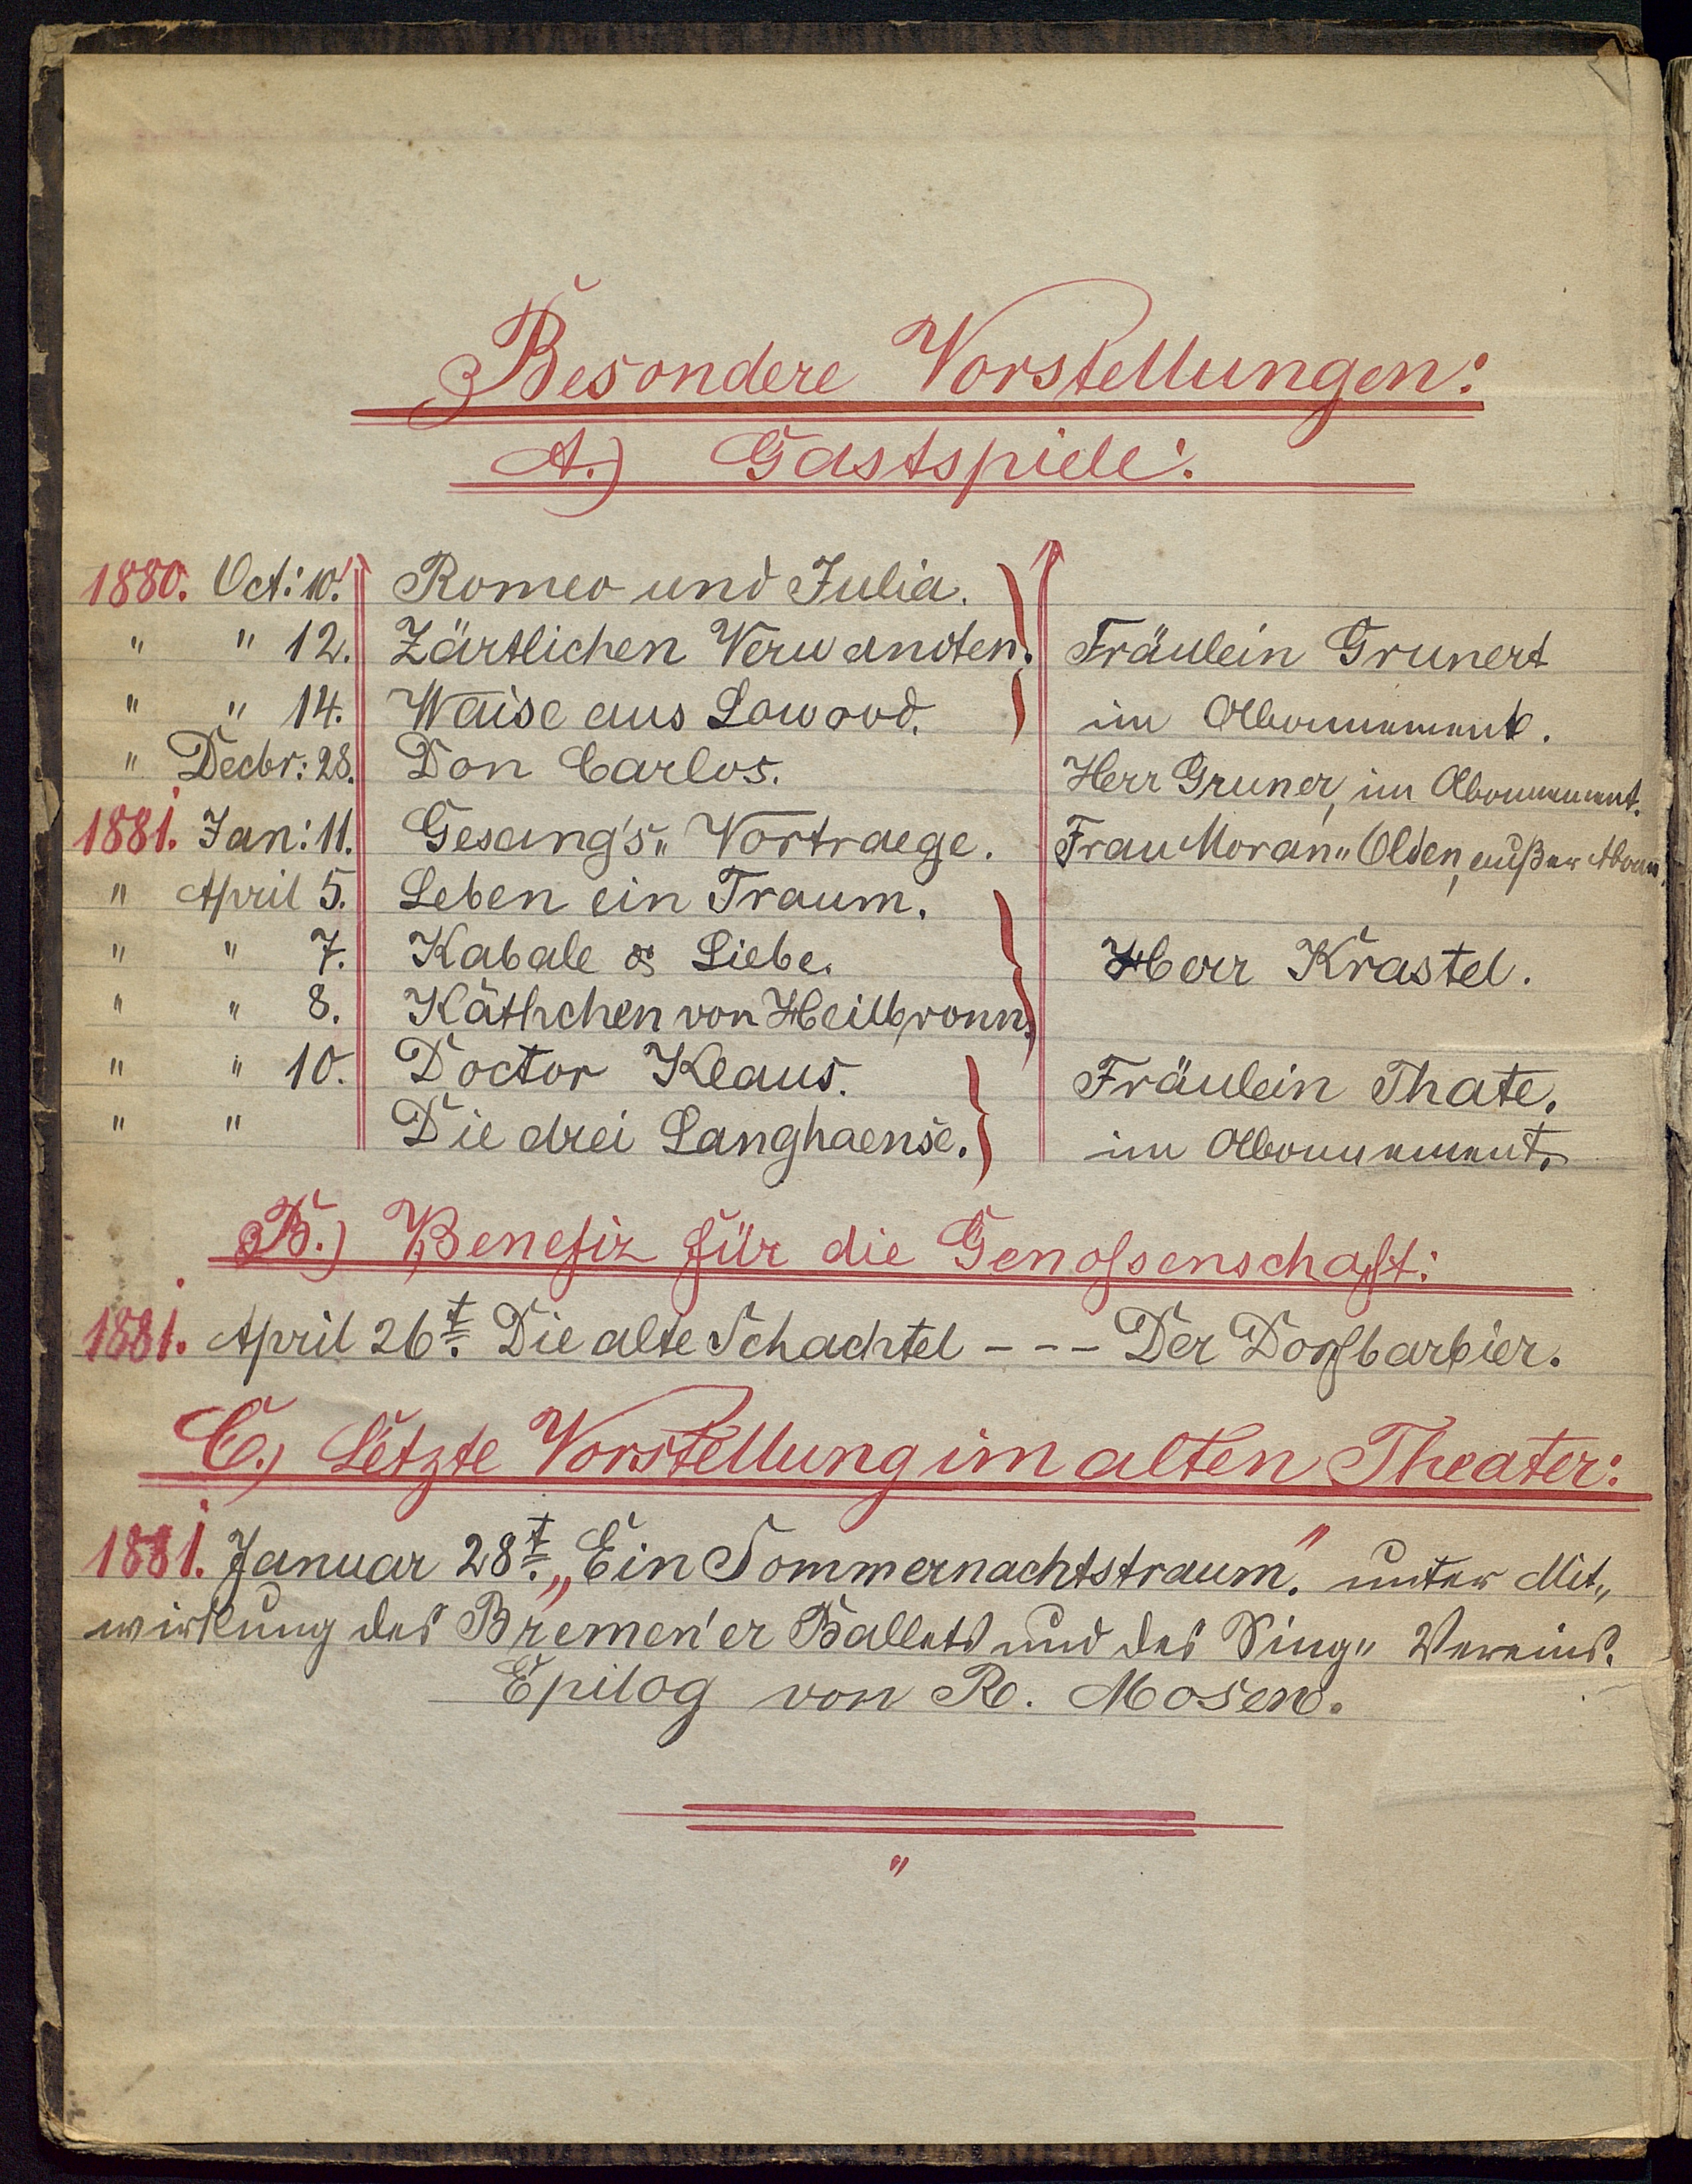 Besondere Vorstellungen:
A.) Gastspiele:
1880. Oct: 10. Romeo und Julia.
" " 12. Zärtlichen Verwandten. Fräulein Grunert
" " 14. Waise aus Lowood. im Abonnement.
" Decbr: 28. Don Carlos. Herr Gruner, im Abonnement.
1881. Jan: 11. Gesang's„ Vortraege. Frau Moran„ Olden, außer Abonn.
" April 5. Leben ein Traum.
" " 7. Kabale & Liebe. Herr Krastel.
" " 8. Käthchen von Heilbronn.
" " 10. Doctor Klaus. Fräulein Thate.
" " Die drei Langhaense. im Abonnement.
B.) Benefiz für die Genossenschaft:
1881. April 26t. Die alte Schachtel - - - Der Dorfbarbier.
C.) Letzte Vorstellung im alten Theater:
1881. Januar 28t. „Ein Sommernachtstraum." unter Mit„
wirkung des Bremen'er Ballets und des Sing„ Vereins.
Epilog von R. Mosen.
"